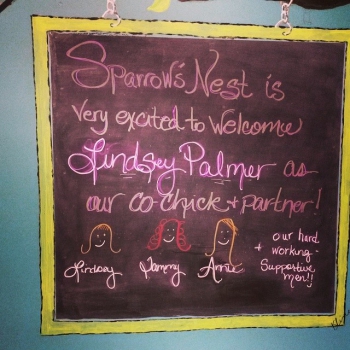 Sparrow's Nest is
very excited to welcome
Lindsey Palmer as
our co-chick + partner!
Lindsey Tammy Annie
+ our hard
working -
Supportive
men!!